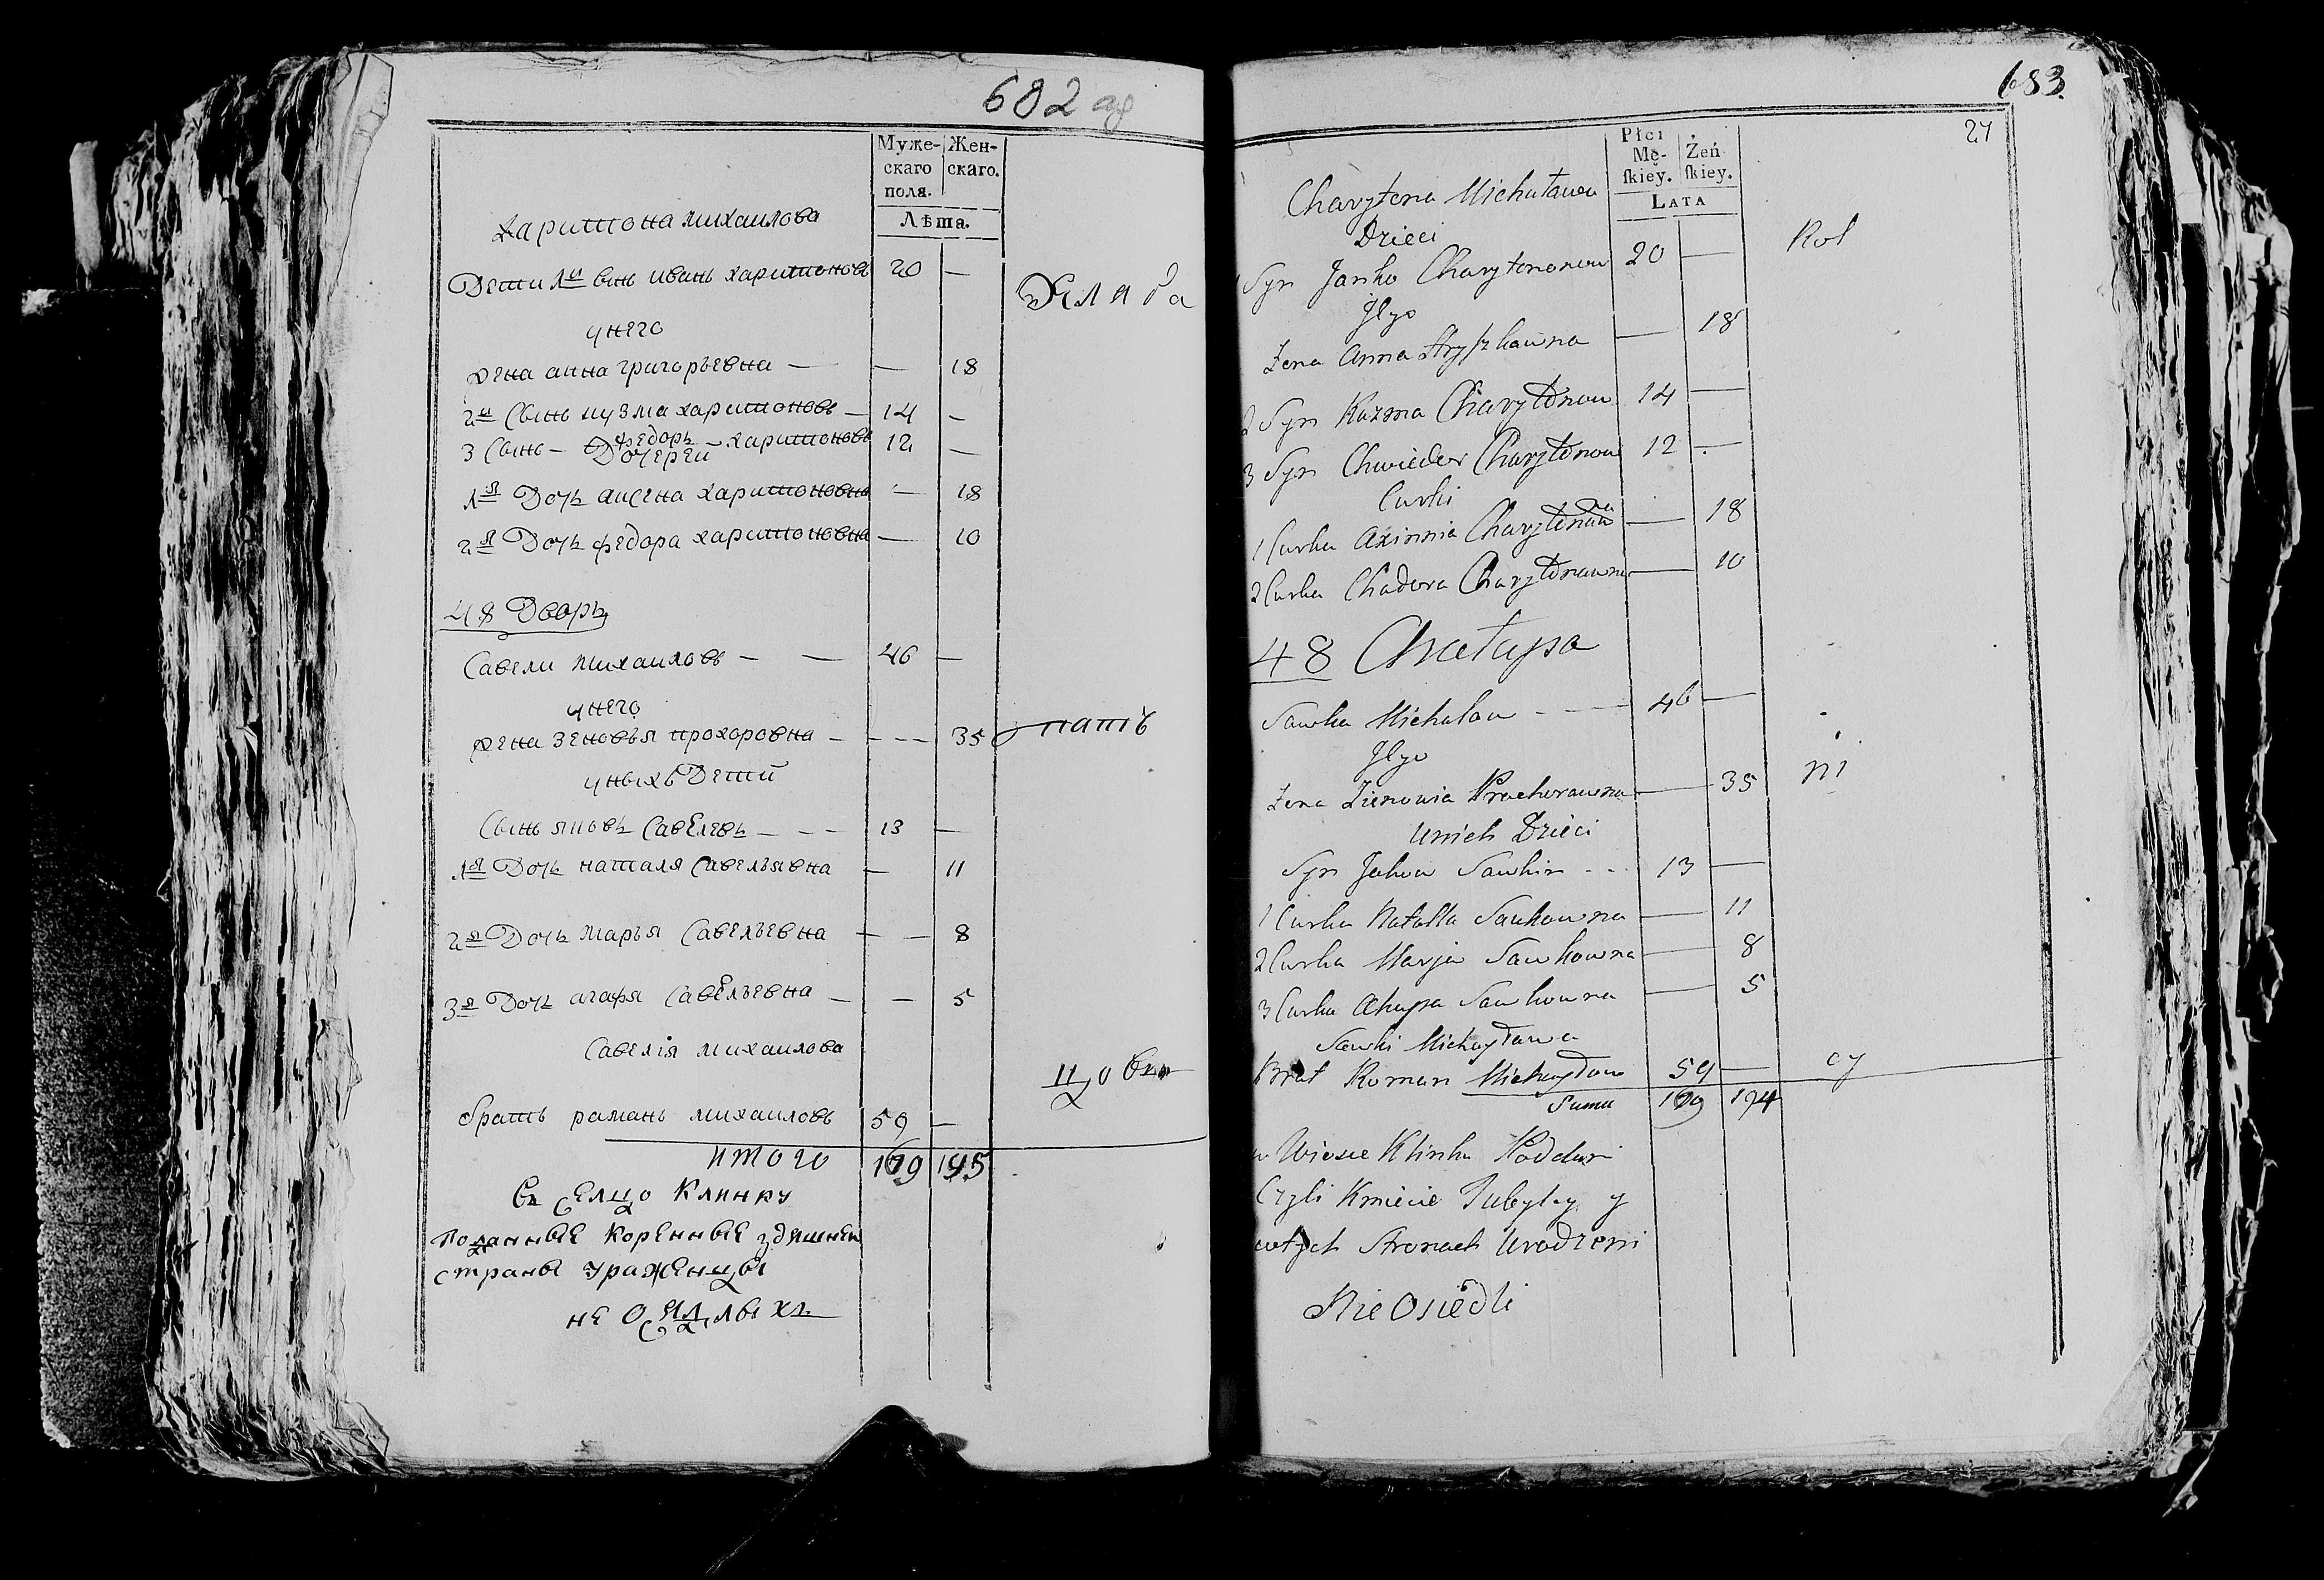 682 об
Муже- Жен-
скаго скаго.
пола.
Лѣта.
Харитона михаилова
Дети 1й сынъ иванъ харитоновъ 20 —
унего
жена анна григорьевна — — 18
2й Сынъ кузма харитоновъ — 14 —
3 Сынъ — федоръ — харитоновъ 12 —
Дочереи
1я Дочь аксена харитоновна — 18
2я Дочь федора харитоновна — 10
48 Дворъ
Савели михаиловъ — — 46 —
унего
жена зеновья прохоровна — - - - 35
уныхъ Детй
Сынъ яковъ Савелевъ — - - 13 —
1я Дочь наталя Савельявна — 11
2я Дочь марья Савельевна — — 8
3я Дочь агафя Савельевна — — 5
Савелія михаилова
братъ раманъ михаиловъ 59 —
итого 169 195
Въ селцо Клинку
поданные коренные здешней
страны уроженцы
не оседлыхъ
683
27
Płci
Mę- Żeń
skiey. skiey.
Lata
Charytona Michałowa
Dzieci
1 Syn Janko Charytonow 20 —
Jego
Zena Anna Hryszkawna — 18
2 Syn Kuzma Charytonow 14 —
3 Syn Chwieder Charytonow 12 —
Curki
1 Curka Axinnia Charytonowna — 18
2 Curka Chadora Charytonawna — 10
48 Chałupa
Sawka Michałow - - - 46 —
Jego
Zena Zienowia Prochorawna — 35
Unich Dzieci
Syn Jakow Sawkin - - - 13 —
1 Curka Natalla Saukowna — 11
2 Curka Marja Sawkowna — 8
3 Curka Ahapa Sawkowna — 5
Sawki Michayłowa
Brat Roman Michayłow 59 —
Suma 169 194
w Wiosce Klinku Poddani
Czyli Kmiecie Tubylcy y
wtych Stronach Urodzeni
Nie Osiedli